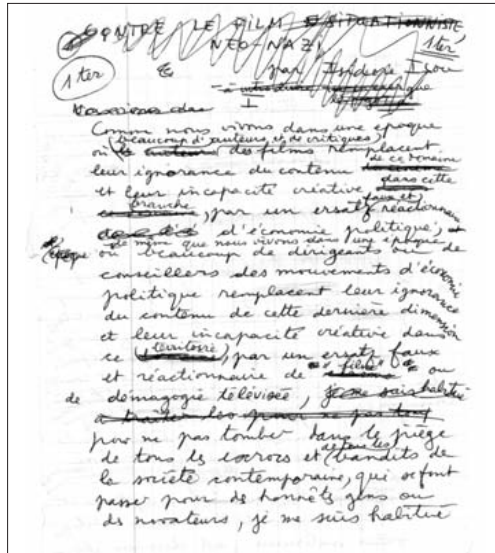 CONTRE LE FILM SITUATIONNISTE,
NÉO-NAZI
1 ter
1 ter
par Isidore Isou
I
Comme nous vivons dans une époque
où beaucoup d'auteurs et de critiques
des films remplacent
leur ignorance du contenu de ce domaine
et leur incapacité créative dans cette
branche, par un ersatz faux et réactionnaire
d'économie politique, et
de même que nous vivons dans une époque
où beaucoup de dirigeants ou de
conseillers des mouvements d'économie
politique remplacent leur ignorance
du contenu de cette dernière dimension
et leur incapacité créative dans
ce territoire, par un ersatz faux
et réactionnaire de "film" ou
de démagogie télévisée, je me suis habitué
pour ne pas tomber dans le piège
de tous les escrocs et de tous les bandits de
la société contemporaine, qui se font
passer pour des honnêts gens ou
des novateurs, je me suis habitué